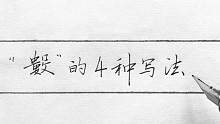 “數”的4种写法